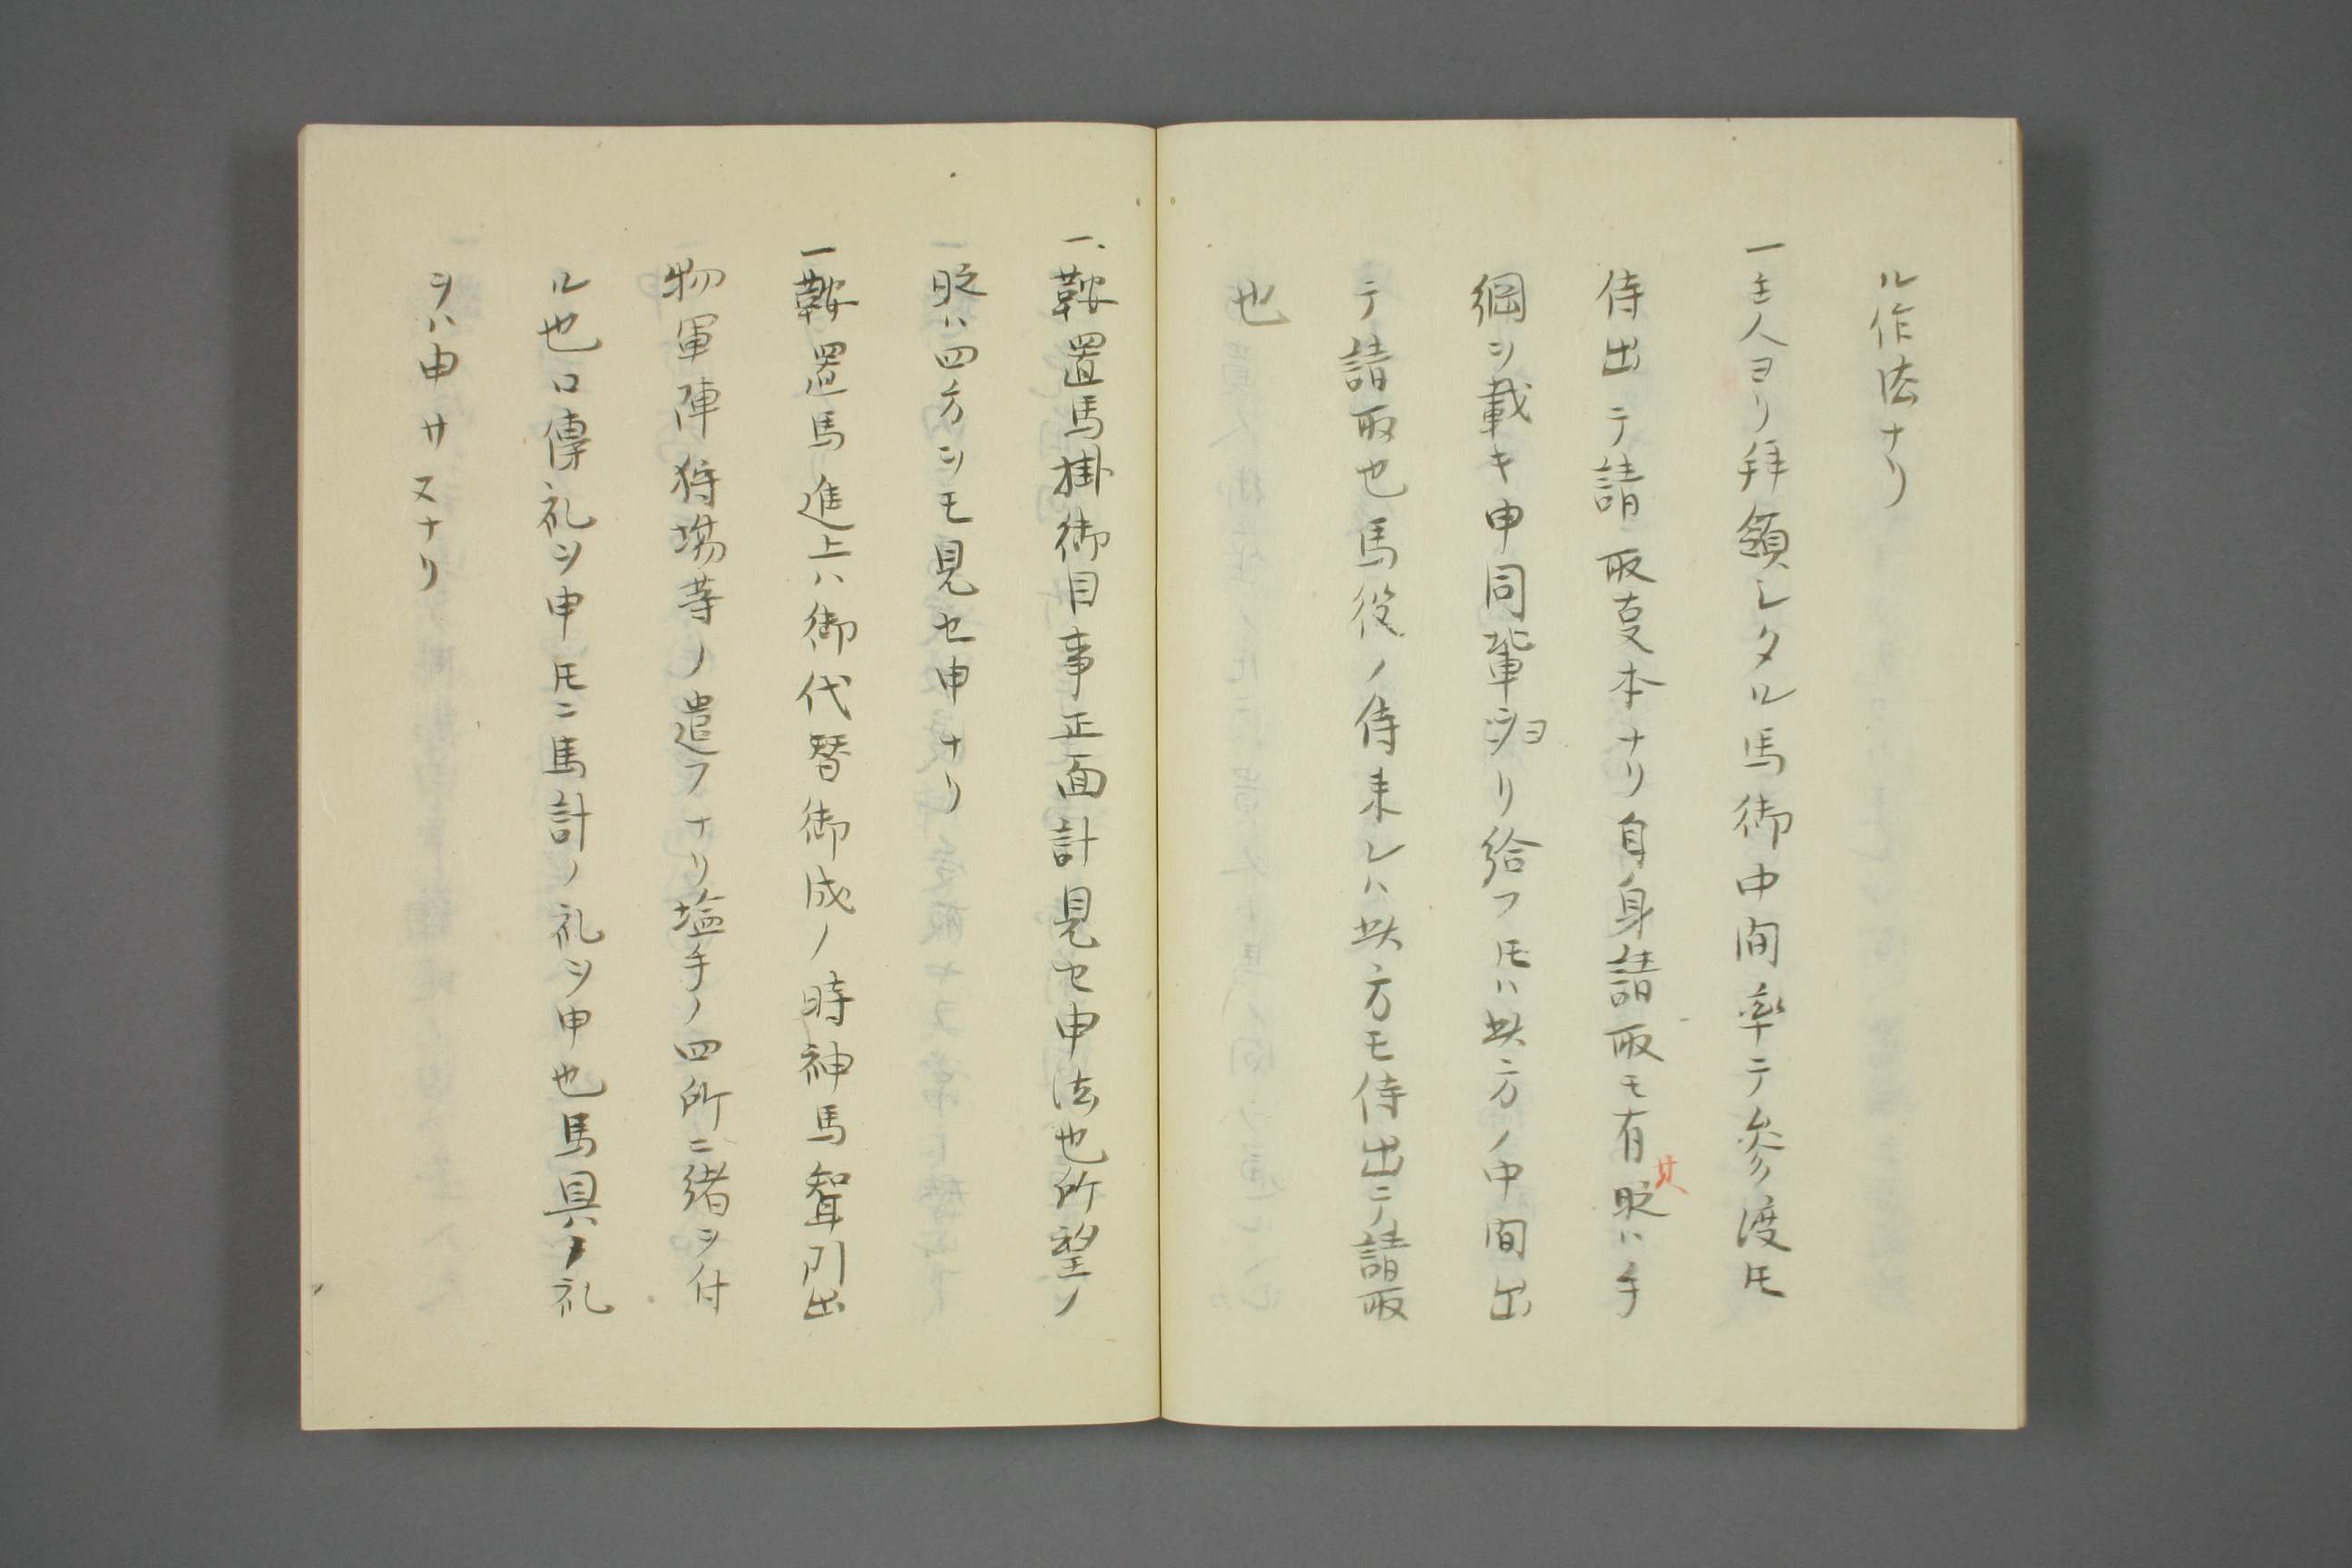 ル作法ナリ
一主人ヨリ拝領シタル馬御中間率テ参渡𪜈
侍出テ請取事本ナリ自身請取モ有其眧ハ手
綱ヲ載キ申同輩ヨリ給フ𪜈ハ此方ノ中間出
テ請取也馬役ノ侍来レハ此方モ侍出テ請取
也
一鞍置馬掛御目事正面計見セ申法也所望ノ
眧ハ四方ヲモ見セ申ナリ
一鞍置馬進上ハ御代替御成ノ時神馬聟引出
物軍陣狩場等ノ遣フナリ塩手ノ四所ニ緒ヲ付
ル也口傳礼ヲ申𪜈ニ馬計ノ礼ヲ申也馬具ノ礼
ヲハ申サヌナリ